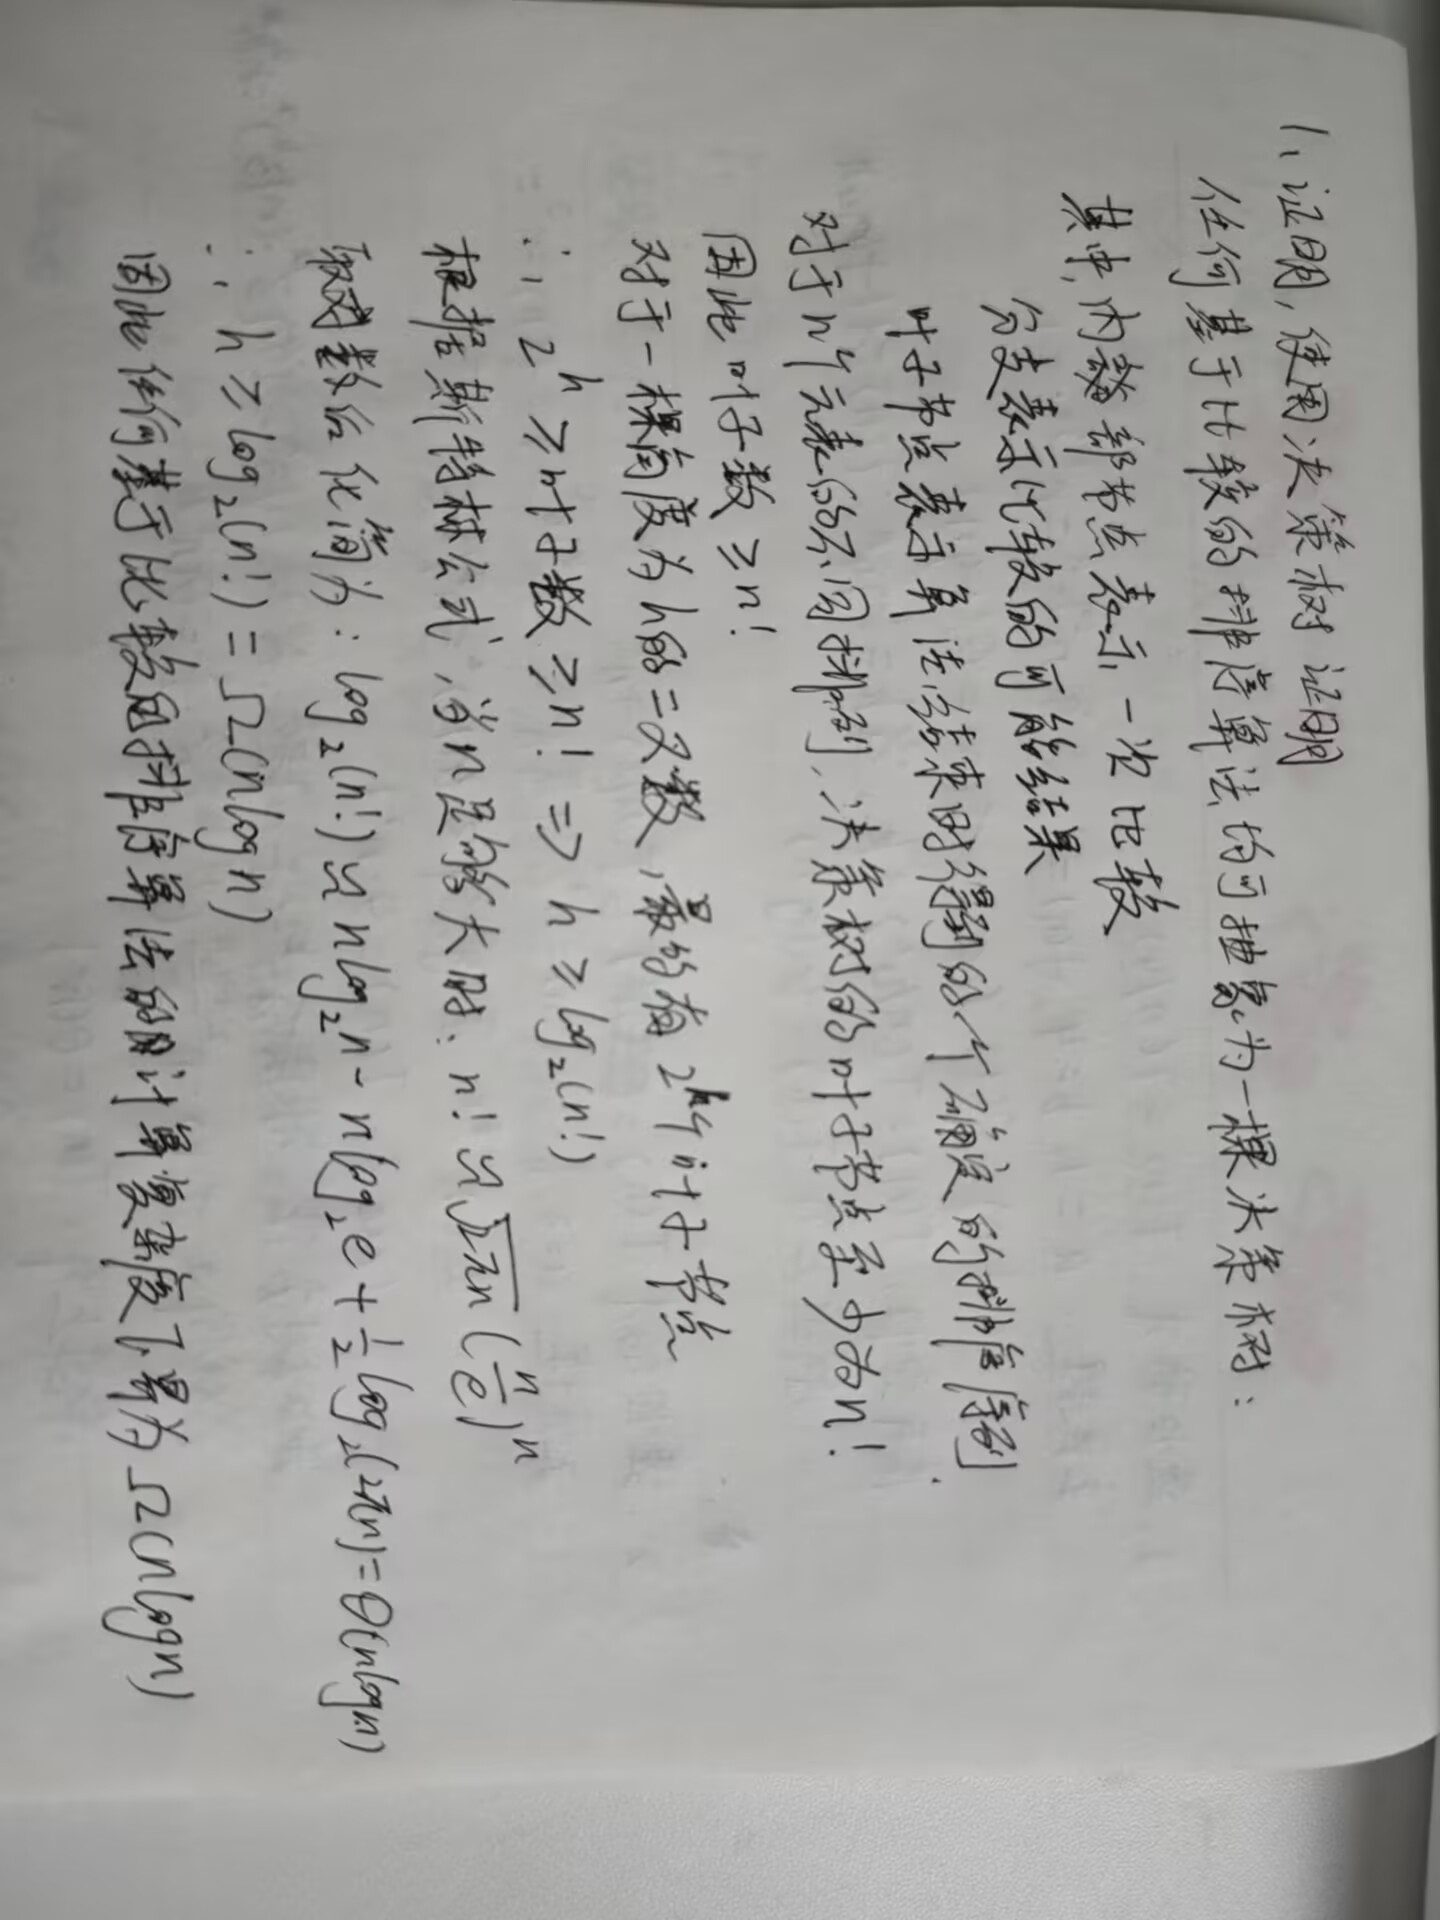 1、证明,使用决策树证明
任何基于比较的排序算法均可抽象为一棵决策树：
其中,内部节点表示一次比较
分支表示比较的可能结果
叶子节点表示算法结束时得到的个确定的排序序列.
对于n个元素的不同排列,决策树的叶子节点至少为n!
因此叶子数≥n!
对于一棵高度为h的二叉数,最多有2^h个叶子节点
∴ 2^h ≥叶子数≥n! => h ≥ log₂(n!)
根据斯特林公式,当n足够大时: n! ≈ √2πn (n/e)^n
取对数后化简为: log₂(n!) ≈ nlog₂n - nlog₂e + 1/2 log₂(2πn) = Θ(nlogn)
∴ h ≥ log₂(n!) = Ω(nlogn)
因此任何基于比较的排序算法的计算复杂度下界为Ω(nlogn)